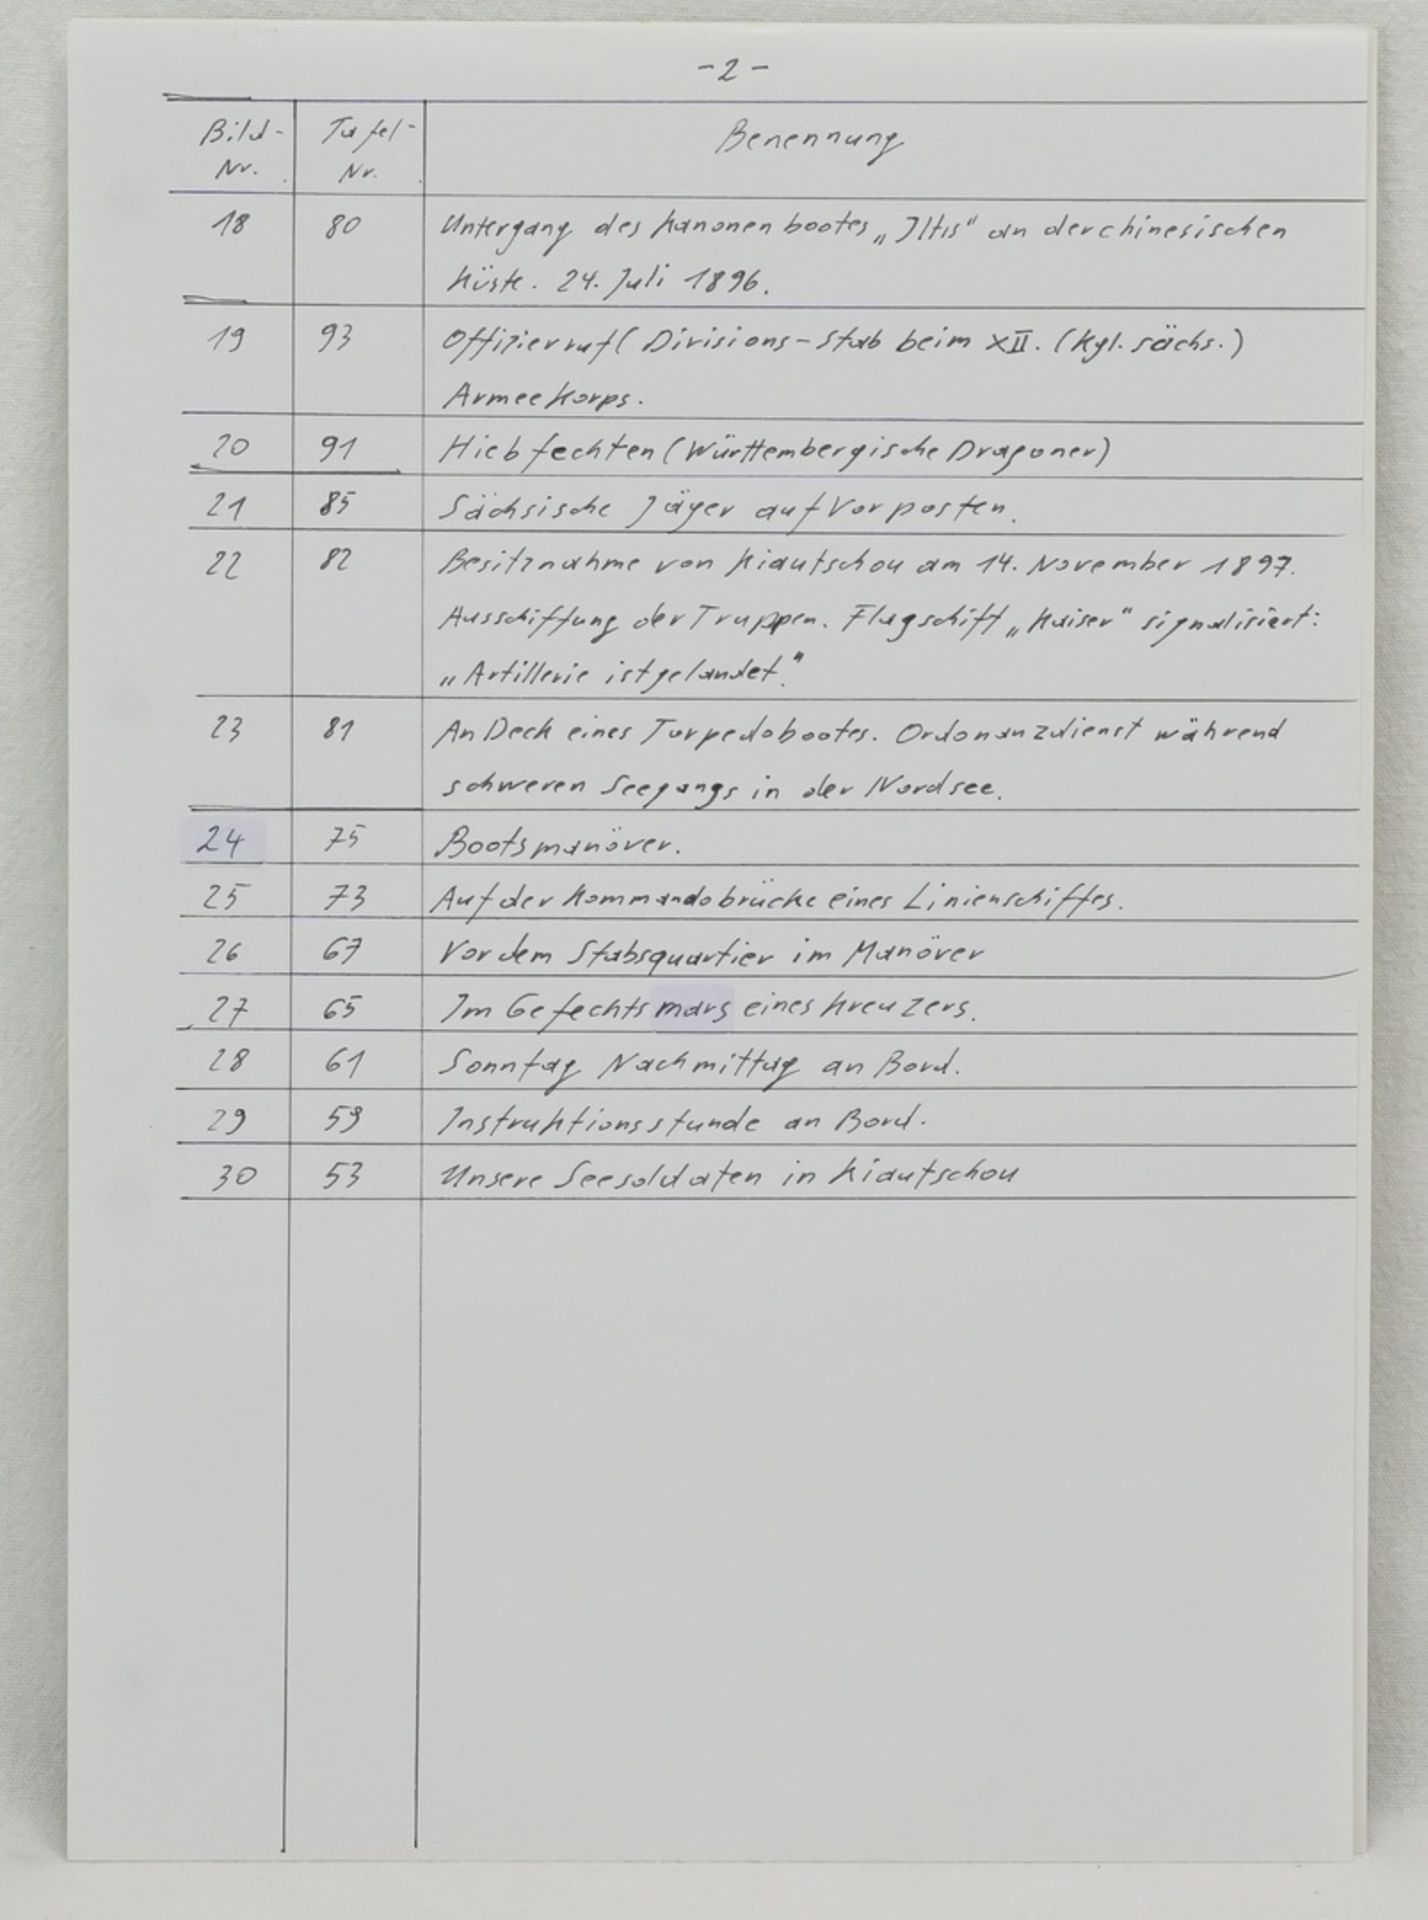 -2-
Bild- Tafel- Benennung
Nr. Nr.
18 80 Untergang des Kanonenbootes „Iltis" an der chinesischen
Küste. 24. Juli 1896.
19 93 Offizierruf (Divisions-Stab beim XII. (Kgl. sächs.)
Armeekorps.
20 91 Hiebfechten (Württembergische Dragoner)
21 85 Sächsische Jäger auf Vorposten.
22 82 Besitznahme von Kiautschou am 14. November 1897.
Ausschiffung der Truppen. Flagschiff „Kaiser" signalisiert:
„Artillerie ist gelandet."
23 81 An Deck eines Torpedobootes. Ordonanzdienst während
schweren Seegangs in der Nordsee.
24 75 Bootsmanöver.
25 73 Auf der Kommandobrücke eines Linienschiffes.
26 67 Vor dem Stabsquartier im Manöver
27 65 Im Gefechtsmars eines Kreuzers.
28 61 Sonntag Nachmittag an Bord.
29 59 Instruktionsstunde an Bord.
30 53 Unsere Seesoldaten in Kiautschou